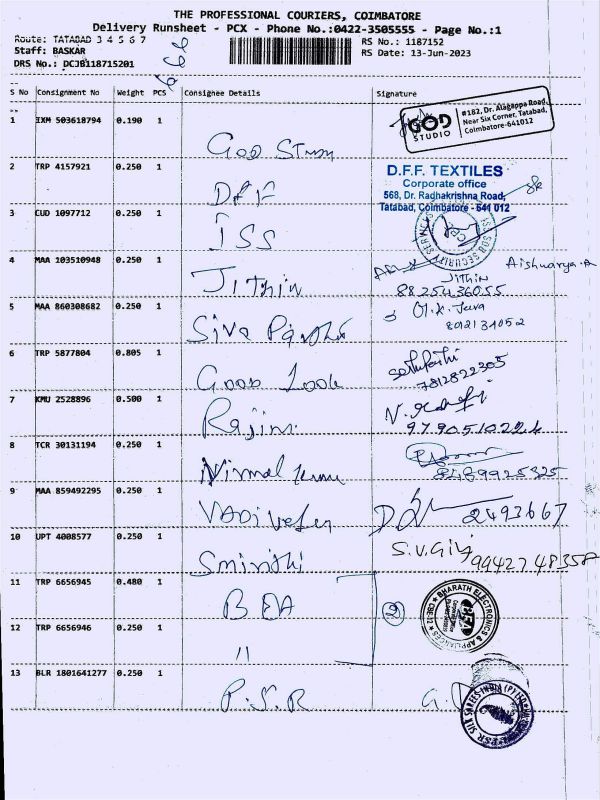 THE PROFESSIONAL COURIERS, COIMBATORE
Delivery Runsheet - PCX - Phone No.:0422-3505555 - Page No.:1
Route: TATABAD 3 4 5 6 7
RS No.: 1187152
Staff: BASKAR
RS Date: 13-Jun-2023
DRS No.: DCJB118715201
S No Consignment No Weight PCS Consignee Details Signature
1 IXM 503618794 0.190 1
GOD STUDIO
#182, Dr. Alagappa Road,
Near Six Corner, Tatabad,
Coimbatore-641012
2 TRP 4157921 0.250 1 DFF
D.F.F. TEXTILES
Corporate office
568, Dr. Radhakrishna Road,
Tatabad, Coimbatore - 641 012
3 CUD 1097712 0.250 1 ISS
4 MAA 103510948 0.250 1 Jithin
Aishwarya.A
Jithin
8825436055
5 MAA 860308682 0.250 1 Siva
6 TRP 5877804 0.805 1 Good Look
7812822305
7 KMU 2528896 0.500 1 Rajini
9790510224
8 TCR 30131194 0.250 1 Nirmal
8489925325
9 MAA 859492295 0.250 1 Vadivelen
2493667
10 UPT 4008577 0.250 1
S.V.Giri
9942748358
11 TRP 6656945 0.480 1 BEA
2
BHARATH ELECTRONICS & APPLIANCES
12 TRP 6656946 0.250 1 "
13 BLR 1801641277 0.250 1 P.S.R